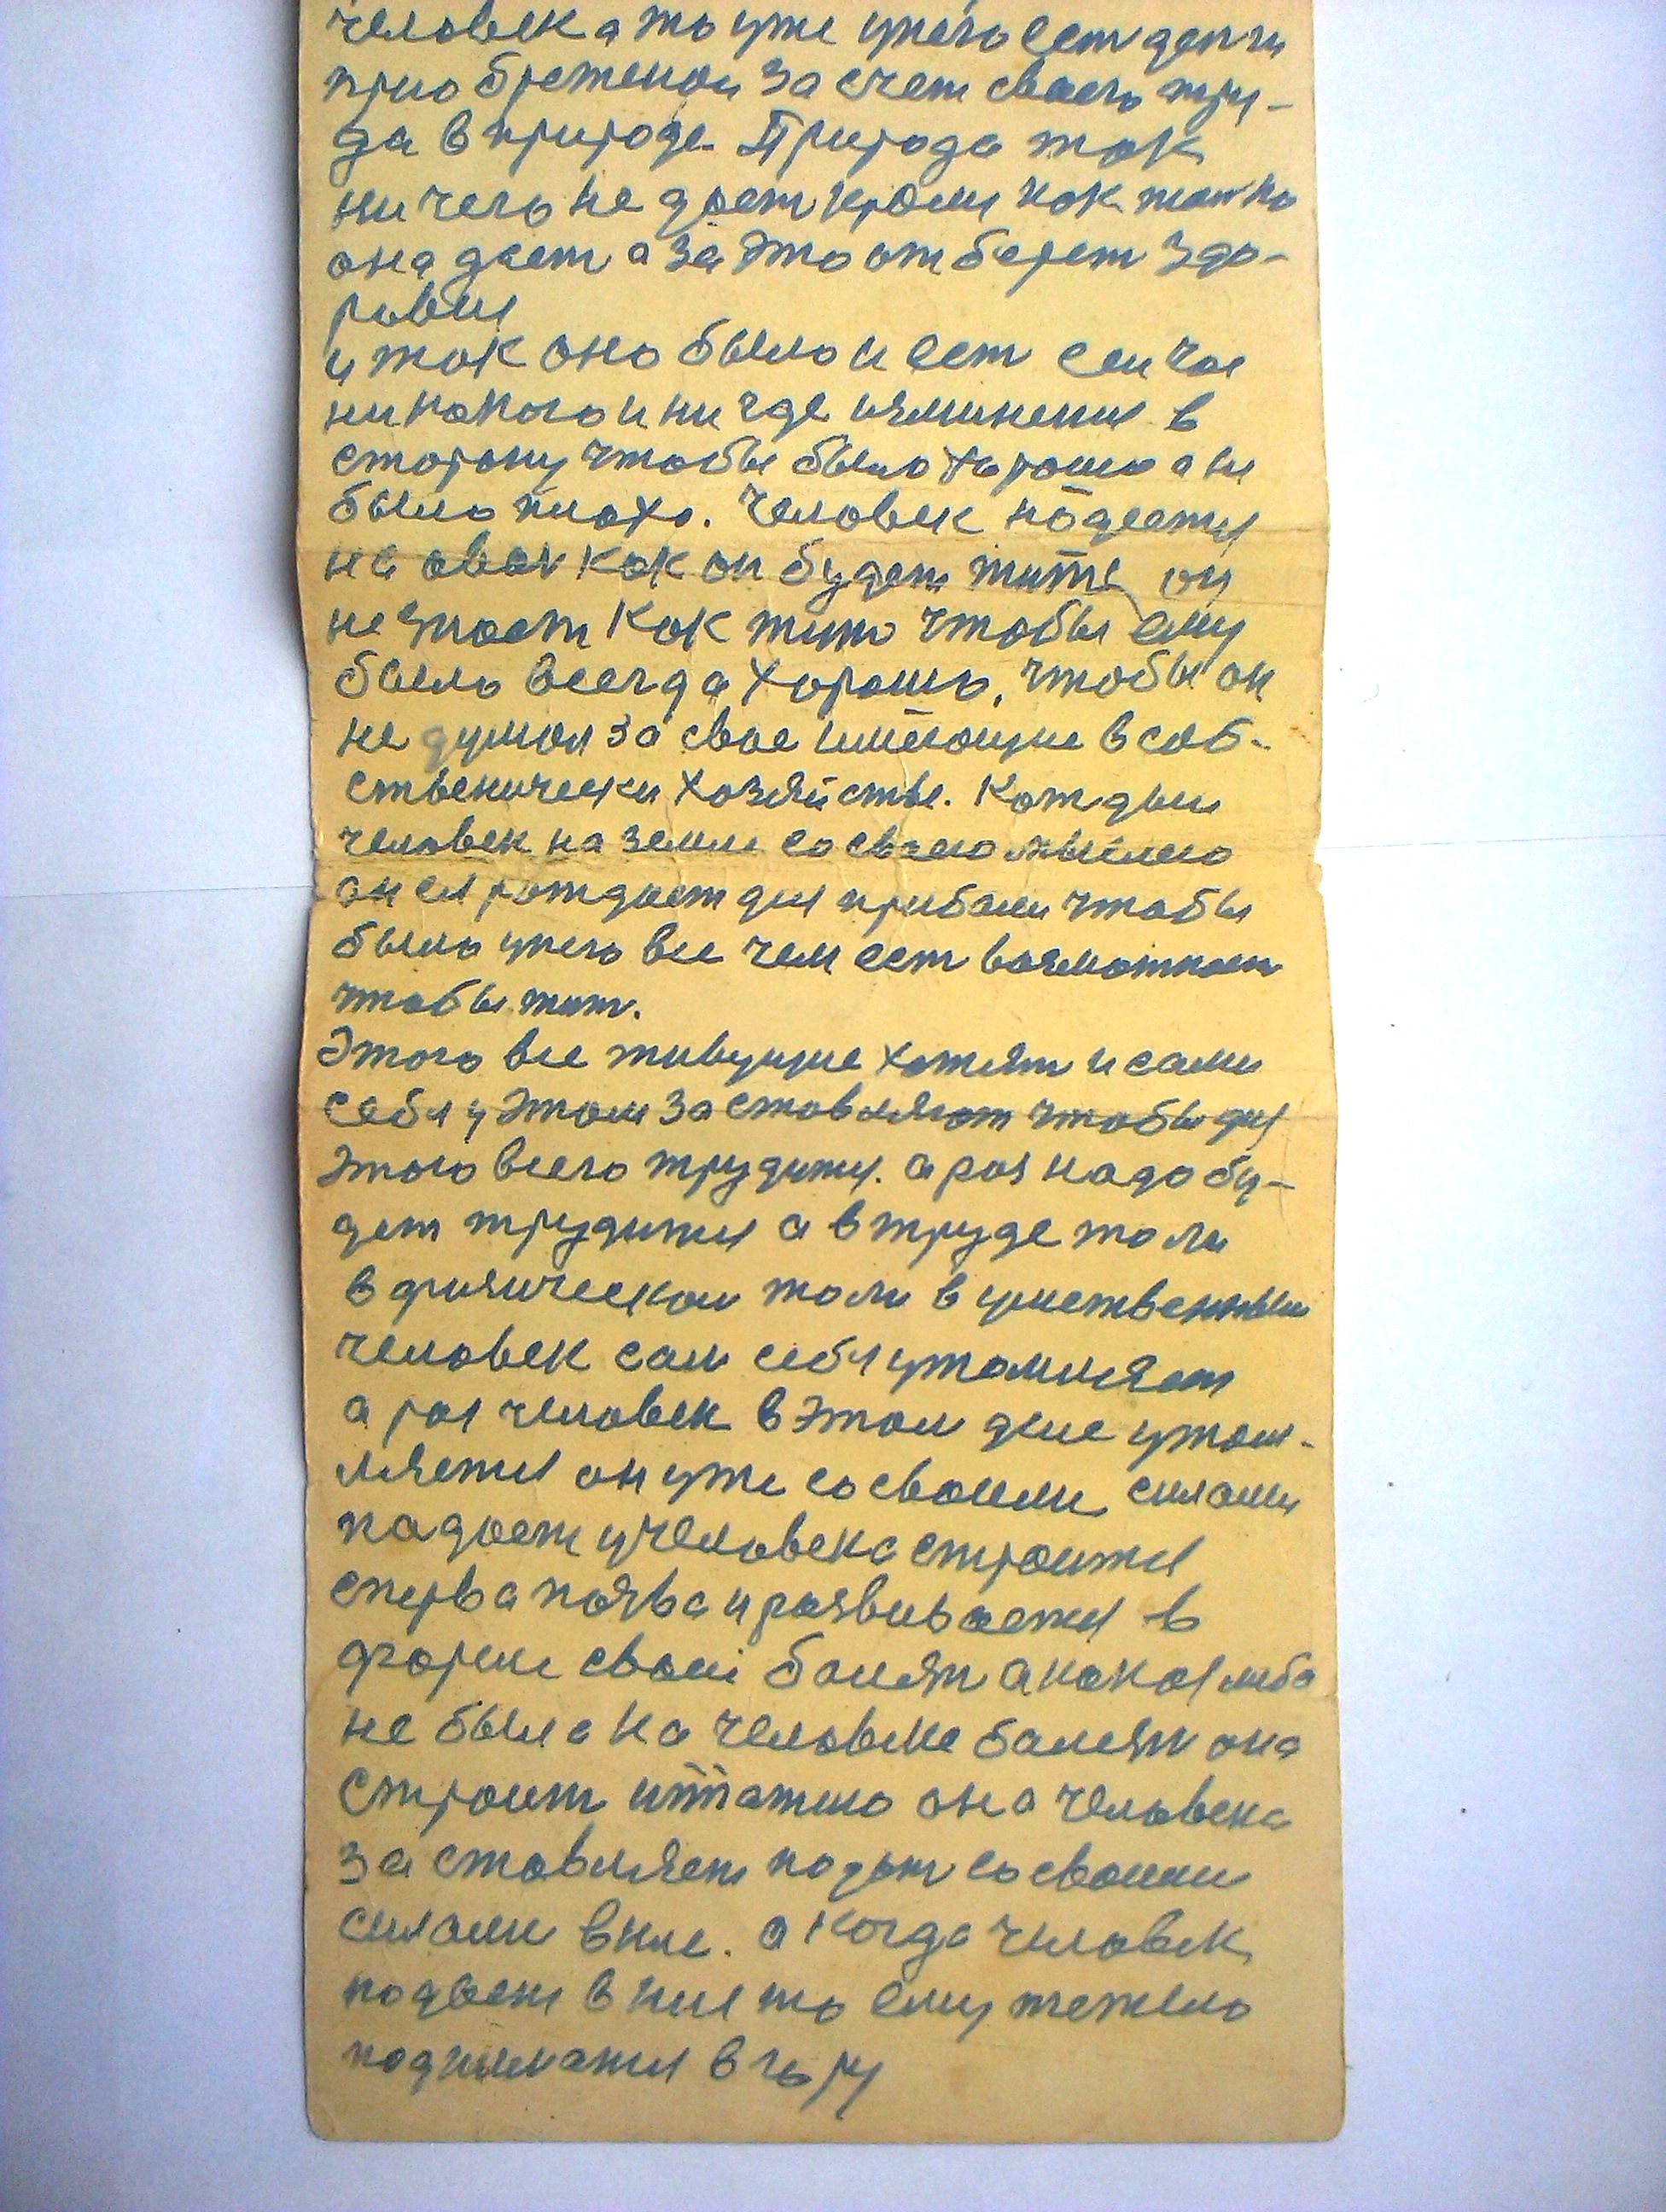 человек а то уже унего ест денги
прио бретеной за счет своего тру-
да в природе. Природа так
ни чего не дает кроми как толко
она дает а за это от берет здо-
ровия
и так оно было и ест сеичас
ни какого и ни где изминения в
сторону чтобы было хорошо а ни
было плохо. Человек надеется
на авос как он будет жить он
не знает как жит чтобы ему
было всегда хорошо, чтобы он
не думал за свое имеющие в соб-
ственически хозяйстве. Каждыи
человек на земли со своею мыслею
он ся рождает для прибали чтобы
было унего все чем ест возможност
чтобы жит.
Этого все живущие хотят и сами
себя у этом за ставляют чтобы для
этого всего трудится. а раз надо бу-
дет трудится а в труде то ли
в физическом толи в умственным
человек сам себя утомляет
а раз человек в этом деле утом-
ляется он уже со своими силами
падает у человека строится
сперва почва и развивается в
форми своей болезн а какая либо
не была на человеке болезн она
строит и тяжело она человека
за ставляет падат со своими
силами вниз. а когда человек
подает в низ то ему тежело
поднимается в гору